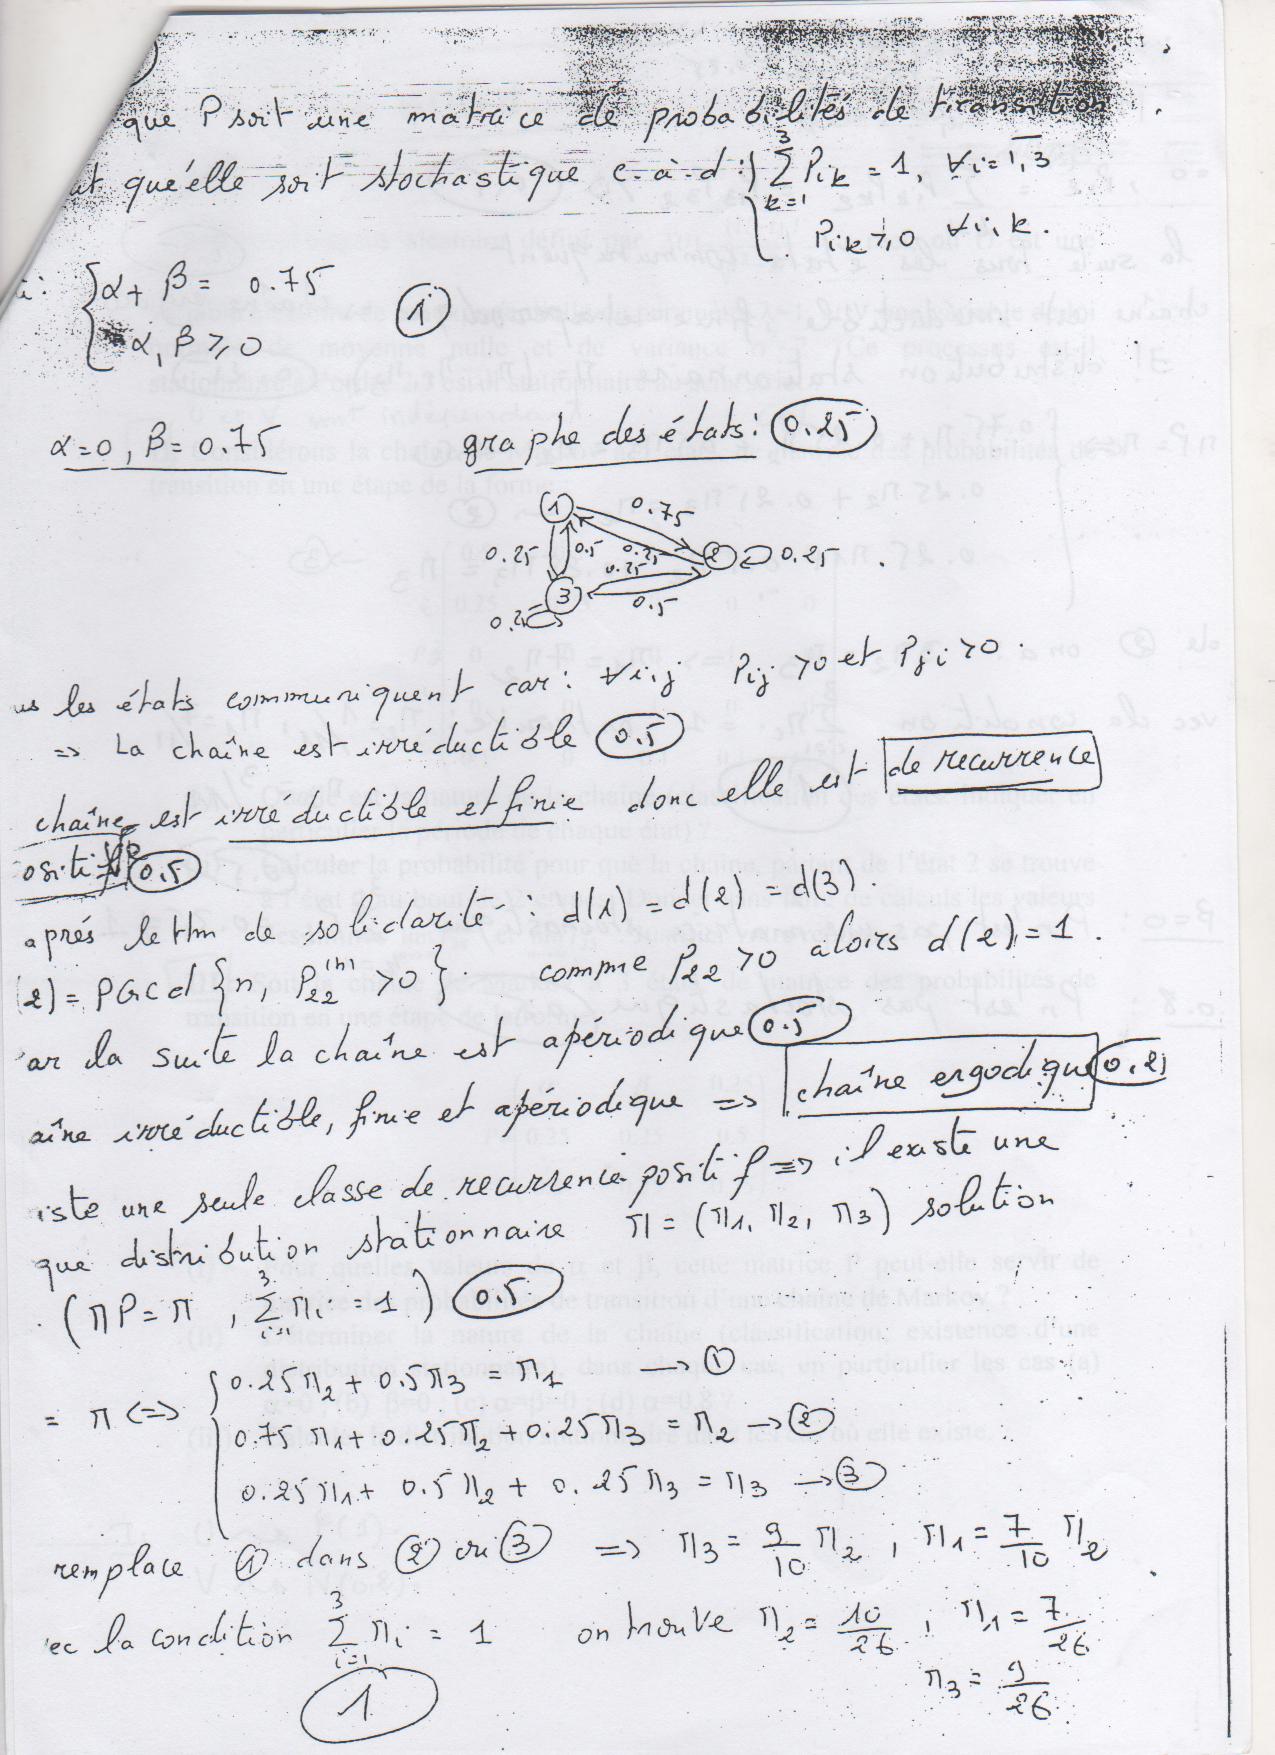 que P soit une matrice de probabilités de transition.
qu'elle soit stochastique c-à-d: { ∑_{k=1}^{3} P_{ik} = 1, ∀i=1,3
P_{ik} ≥ 0 ∀i,k.
{ α + β = 0.75
α, β ≥ 0 (1)
α=0, β=0.75 graphe des états: (0.25)
1 0.75
0.25 0.5 0.25 2 0.25
0.25
3 0.5
0.2
les états communiquent car: ∀i,j P_{ij} > 0 et P_{ji} > 0.
=> La chaîne est irréductible (0.5)
chaîne est irréductible et finie donc elle est de recurrence
ositif (0.5)
aprés le thm de solidarité: d(1) = d(2) = d(3).
(2) = PGcd {n, P_{22}^{(n)} > 0}. comme P_{22} > 0 alors d(2) = 1.
ar la suite la chaîne est apériodique (0.5)
aîne irréductible, finie et apériodique => chaîne ergodique (0.2
iste une seule classe de recurrence positif => il existe une
que distribution stationnaire π = (π1, π2, π3) solution
(πP = π, ∑_{i=1}^{3} πi = 1) (0.5)
= π <=> { 0.25π2 + 0.5π3 = π1 → ①
0.75π1 + 0.25π2 + 0.25π3 = π2 → ②
0.25π1 + 0.5π2 + 0.25π3 = π3 → ③
remplace ① dans ② ou ③ => π3 = 9/10 π2, π1 = 7/10 π2
ec la condition ∑_{i=1}^{3} πi = 1 on trouve π2 = 10/26, π1 = 7/26
π3 = 9/26
(1)